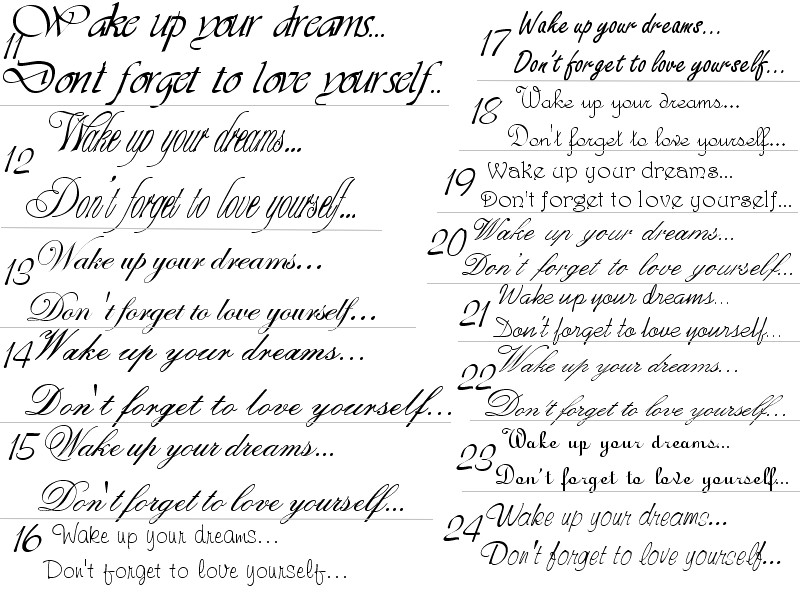 11 Wake up your dreams...
Dont forget to love yourself..
12 Wake up your dreams...
Don't forget to love yourself...
13 Wake up your dreams...
Don 't forget to love yourself...
14 Wake up your dreams...
Don't forget to love yourself...
15 Wake up your dreams...
Don't forget to love yourself...
16 Wake up your dreams...
Don't forget to love yourself...
17 Wake up your dreams...
Don't forget to love yourself...
18 Wake up your dreams...
Don't forget to love yourself...
19 Wake up your dreams...
Don't forget to love yourself...
20 Wake up your dreams...
Don't forget to love yourself...
21 Wake up your dreams...
Don't forget to love yourself...
22 Wake up your dreams...
Don't forget to love yourself...
23 Wake up your dreams...
Don't forget to love yourself...
24 Wake up your dreams...
Don't forget to love yourself...